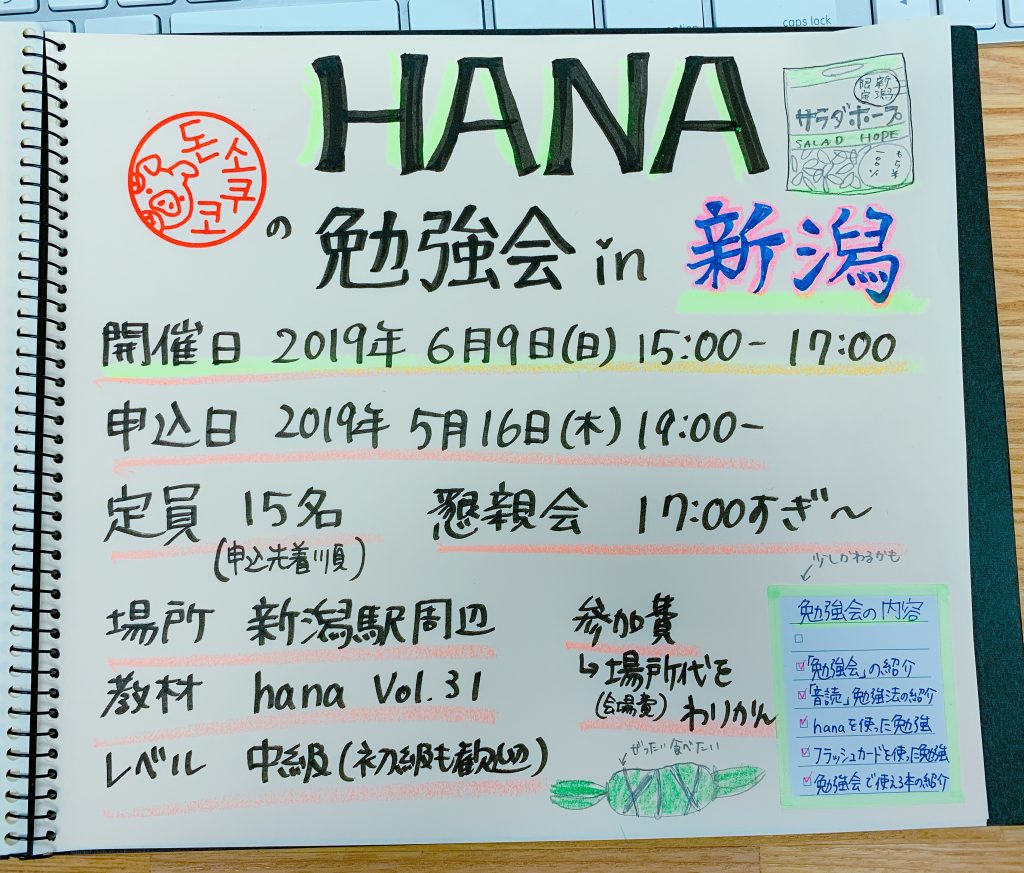 caps lock
HANA
돈소쿠코
新潟限定
サラダホープ
SALAD HOPE
もち米
100%
の勉強会 in 新潟
開催日 2019年 6月9日(日) 15:00- 17:00
申込日 2019年 5月16日(木) 19:00-
定員 15名
(申込先着順)
懇親会 17:00すぎ〜
場所 新潟駅周辺
教材 hana Vol.31
レベル 中級(初級も歓迎)
参加費
↳場所代を
(会場費)わりかん
ぜったい食べたい
少しかわるかも
勉強会の内容
□
☑「勉強会」の紹介
☑「音読」勉強法の紹介
☑hanaを使った勉強
☑フラッシュカードを使った勉強
☑勉強会で使える本の紹介